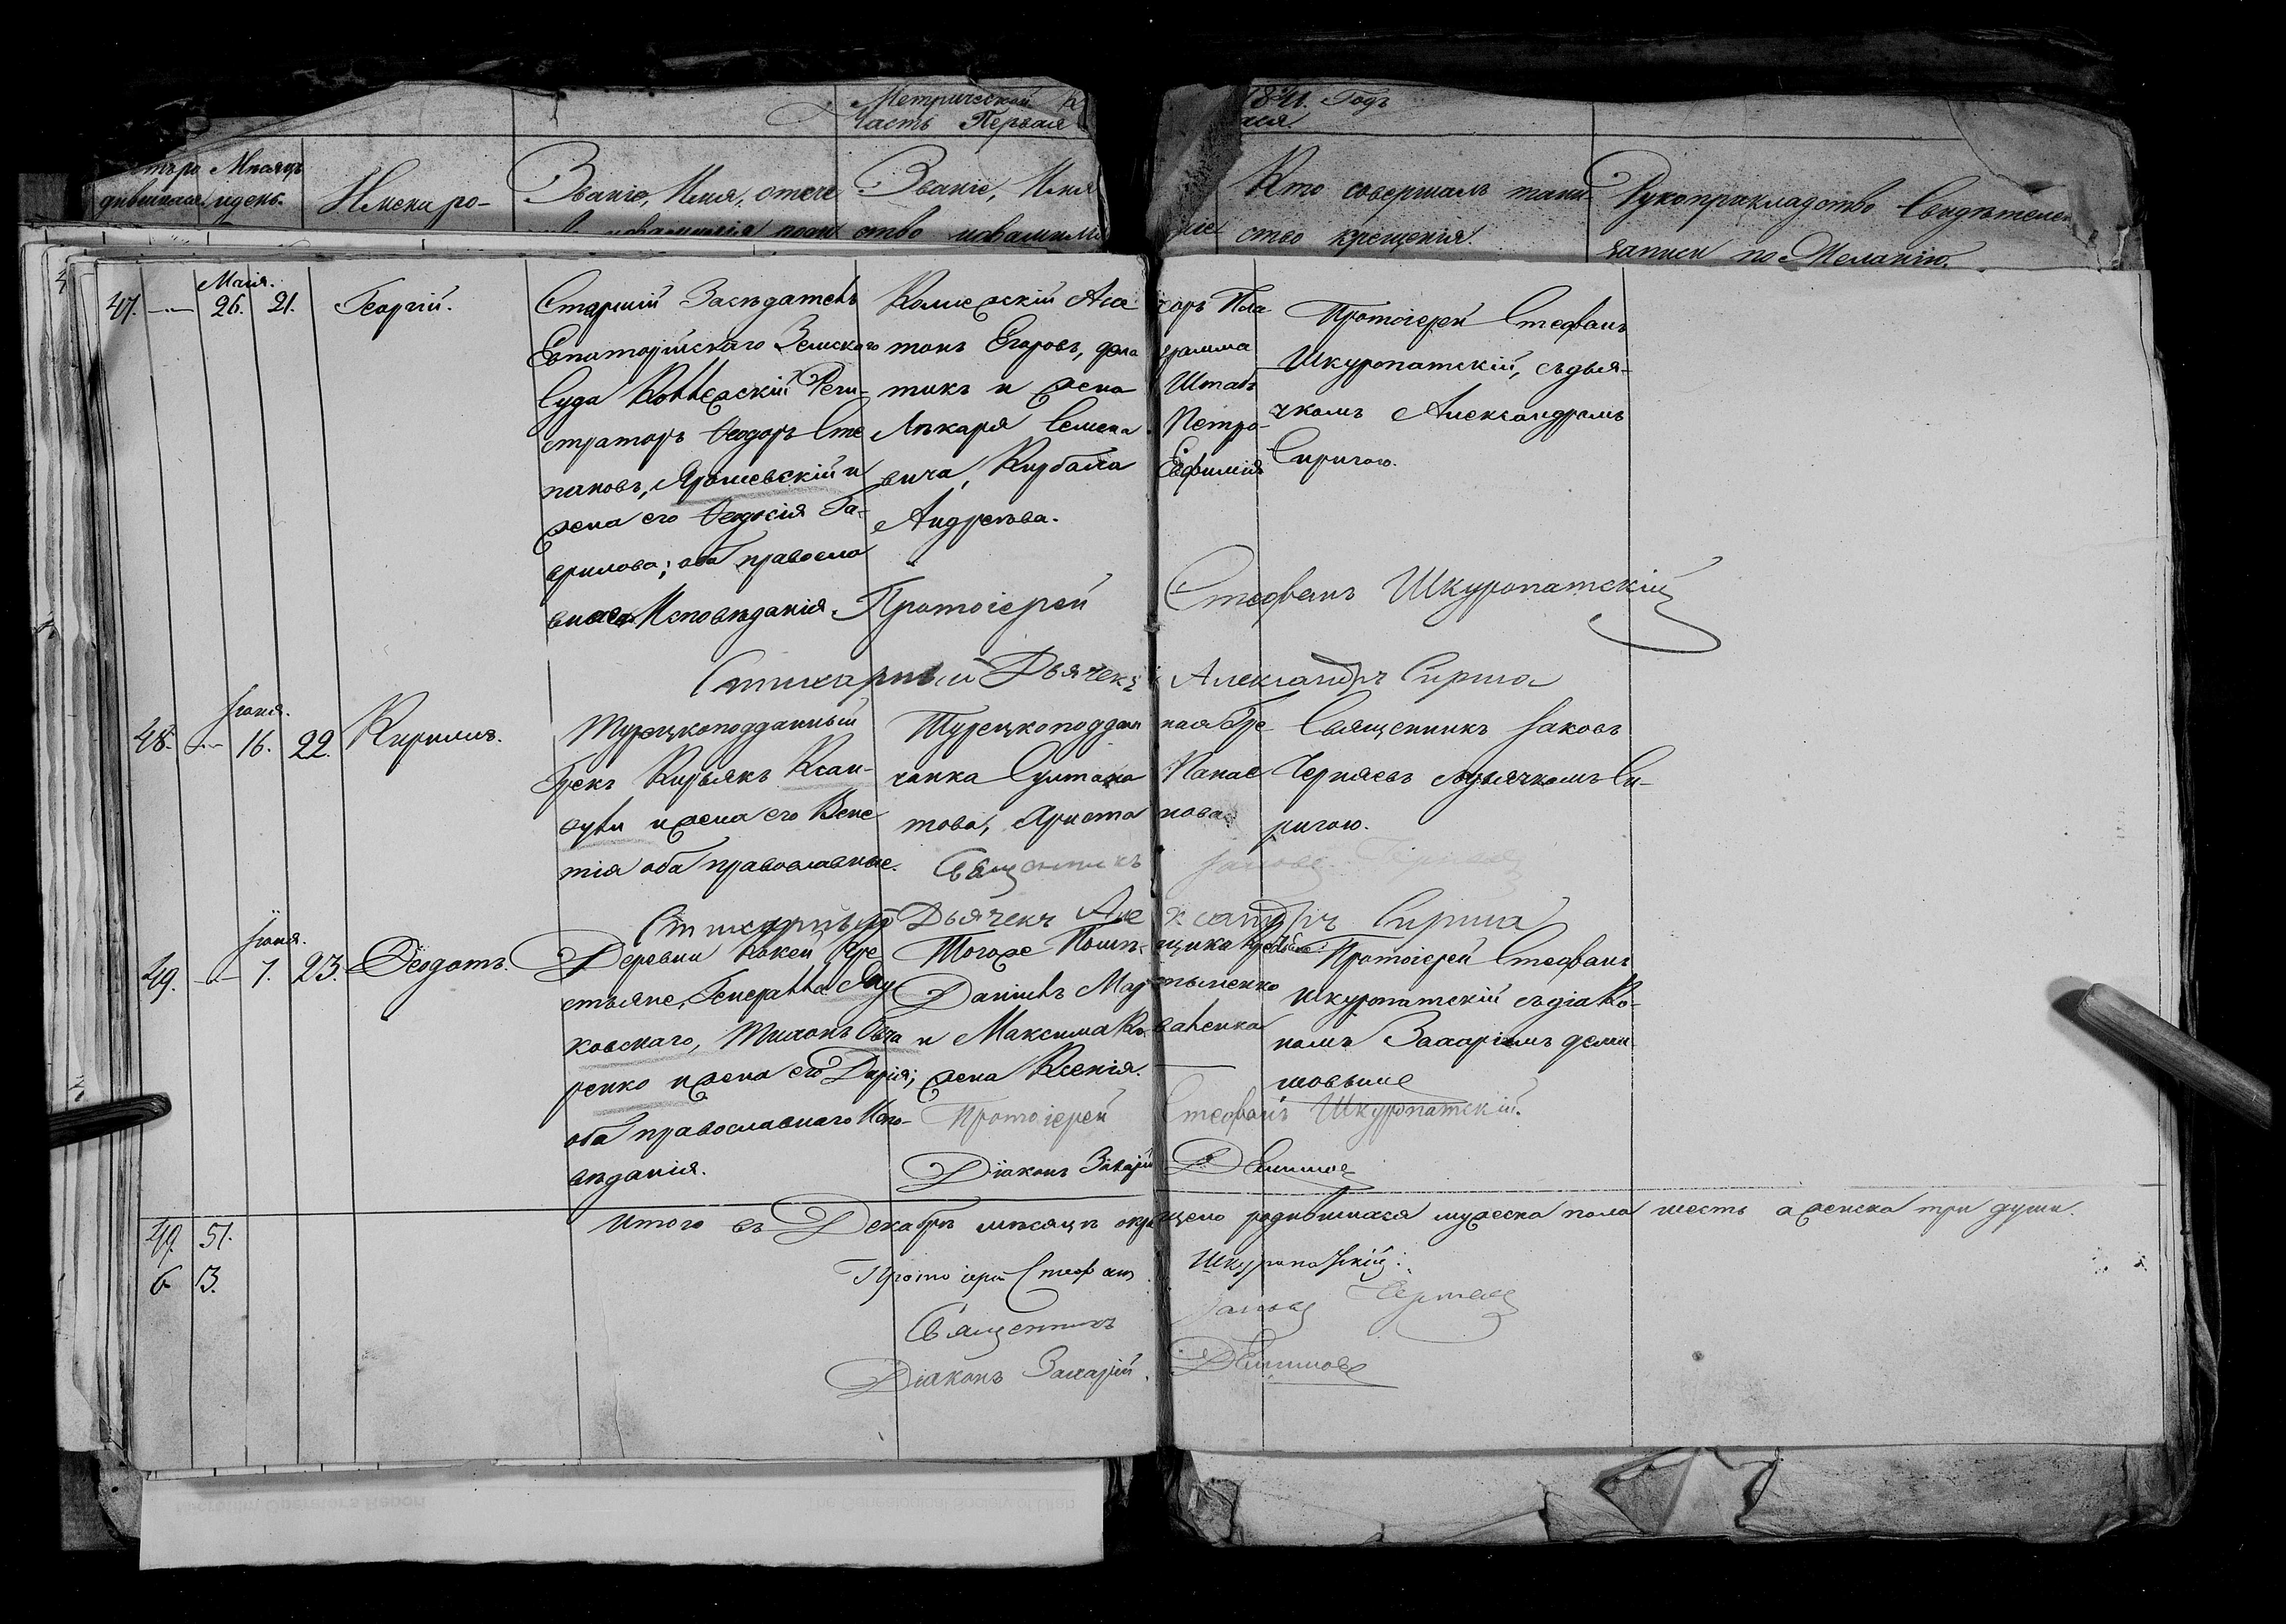 Метрической
Часть Первая
1841. Годъ
Мѣсяцъ
и день.
Имена ро-
Званіе, Имя, отече
Званіе, Имя
Кто совершалъ таин-
ство крещенія.
Рукоприкладство Свидѣтелей
записи по Желанію.
47. Маія. 26. 21. Георгій.
Старшій Засѣдатель
Евпаторійскаго Земскаго
Суда Коллежскій Реги-
страторъ Ѳеодоръ Сте
пановъ, Ярошевскій и
жена его Ѳеодосія Га-
врилова; оба правосла
внаго Исповѣданія.
Коллежскій Асе соръ Пла
тонъ Егоровъ, грамма
тикъ и жена Штабъ
Лѣкаря Семена Петро-
вича, Курбала Евфимія
Андреева.
Протоіерей Стефанъ
Шкуропатскій, съ дья-
чкомъ Александромъ
Сиригою.
Протоіерей Стефанъ Шкуропатскій
Стихарный Дьячекъ Александръ Сирига
48. Іюня. 16. 22. Кириллъ.
Турецкоподданный
Грекъ Кирьякъ Ксан-
и жена его Вене
тія оба православные.
Турецкоподдан ная Гре
чанка Султана Панае
това, Аристанова
Священникъ Іаковъ
Черняевъ съ дьячкомъ Си-
ригою.
Священникъ Іаковъ Черняевъ
Стихарный Дьячекъ Александръ Сирига
49. Іюня. 7. 23. Ѳеодотъ.
Деревни Кокей Кре
стьяне, Генерала
ковскаго, Тихонъ Овча
ренко и жена его Дарія;
оба православнаго Испо-
вѣданія.
Тогоже Помѣ- щика
Даніилъ Мартыненко
и Максима Коваленка
жена Ксенія.
Протоіерей Стефанъ
Шкуропатскій съ діако-
номъ Захаріемъ
Протоіерей Стефанъ Шкуропатскій.
Діаконъ Захарій
49. 51.
6 13.
Итого въ Декабрѣ мѣсяцѣ окрещено родившихся мужеска пола шесть а женска три души.
Протоіерей Стефанъ Шкуропатскій.
Священникъ Іаковъ Черняевъ
Діаконъ Захарій